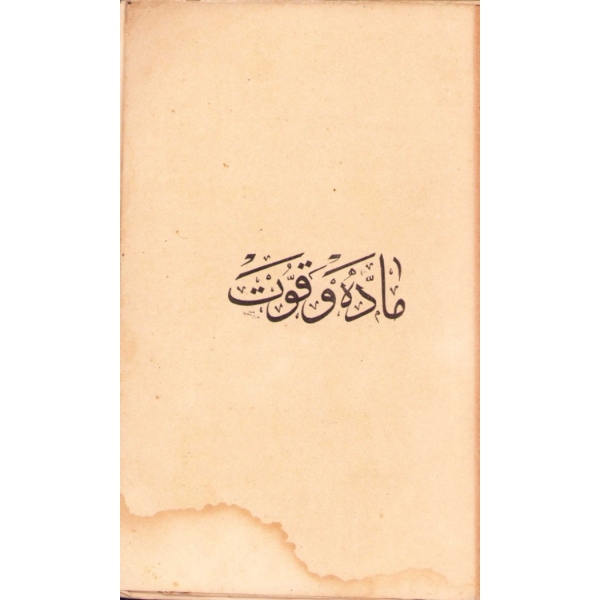 مادّه و قوّت